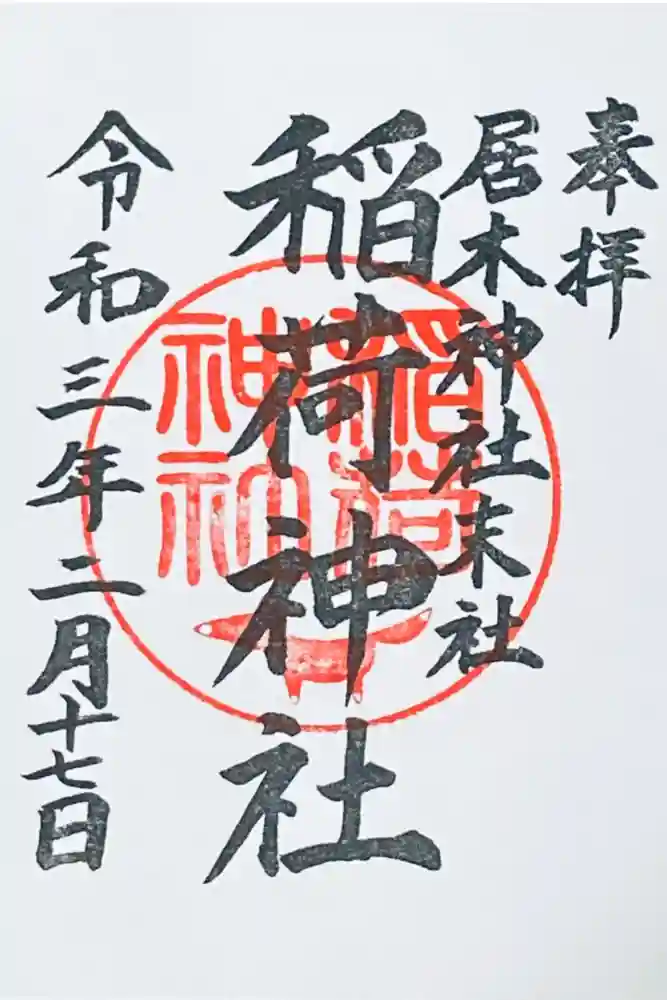 奉拝
居木神社末社
稲荷神社
令和三年二月十七日
稲荷
神社